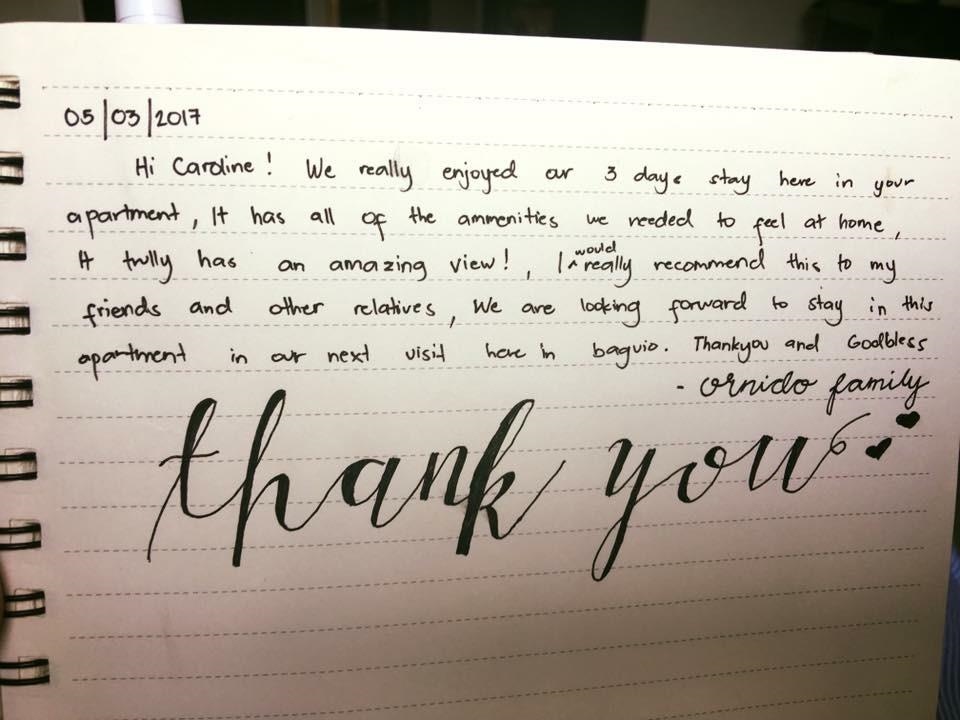 05|03|2017
Hi Caroline! We really enjoyed our 3 days stay here in your
apartment, It has all of the ammenities we needed to feel at home,
It trully has an amazing view!, I would really recommend this to my
friends and other relatives, We are looking forward to stay in this
apartment in our next visit here in baguio. Thankyou and Godbless
- Ornido family
thank you